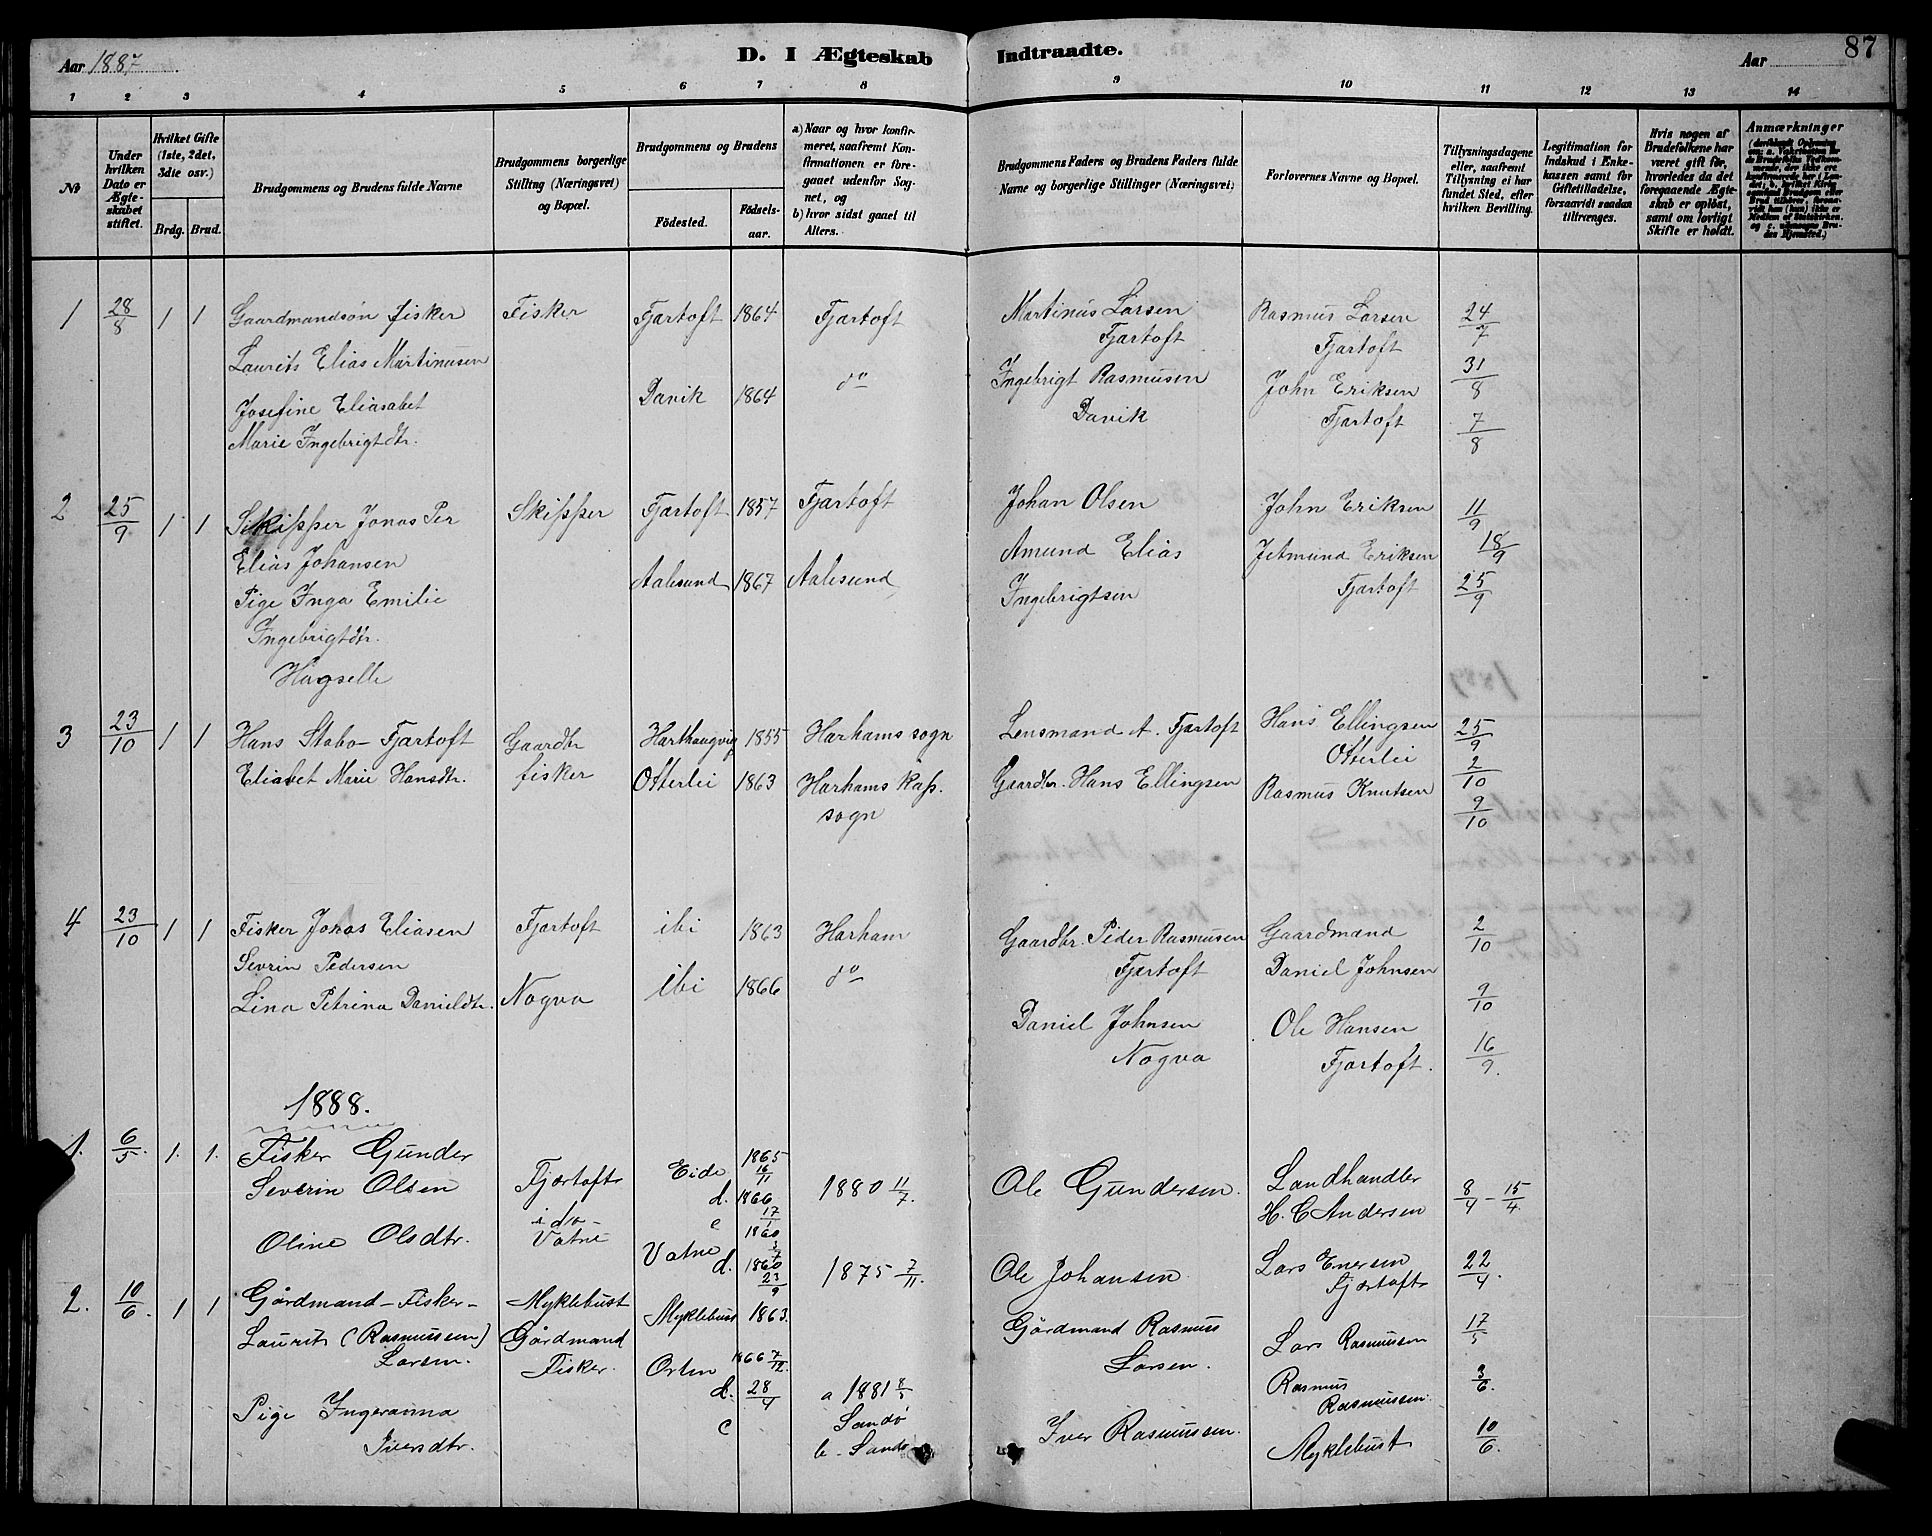 Aar 1887
D. I Ægteskab Indtraadte.
Aar
87
1 2 3 4 5 6 7 8 9 10 11 12 13 14
No
Under hvilken Dato er Ægteskabet stiftet.
Hvilket Gifte (1ste, 2det, 3die osv.)
Brdg. Brud.
Brudgommens og Brudens fulde Navne
Brudgommens borgerlige Stilling (Næringsvei) og Bopæl.
Brudgommens og Brudens
Födested.
Födselsaar.
a) Naar og hvor konfirmeret, saafremt Konfirmationen er foregaaet udenfor Sognet, og
b) hvor sidst gaaet til Alters.
Brudgommens Faders og Brudens Faders fulde Navne og borgerlige Stillinger (Næringsvei)
Forlovernes Navne og Bopæl.
Tillysningsdagene eller, saafremt Tillysning ei har fundet Sted, efter hvilken Bevilling.
Legitimation for Indskud i Enkekassen samt for Giftetilladelse, forsaavidt saadan tiltrænges.
Hvis nogen af Brudefolkene har været gift før, hvorledes da det foregaaende Ægteskab er opløst, samt om lovligt Skifte er holdt.
Anmærkninger
1 28/8 1 1 Gaardmandsön fisker Fisker Fjærtoft 1864 Fjærtoft Martinus Larsen Rasmus Larsen 24/7
Laurits Elias Martinusen Fjærtoft Fjærtoft
Josefine Eliasabet Davik 1864 do Ingebrigt Rasmusen John Eriksen 31/8
Marie Ingebrigtdtr. Davik Fjærtoft 7/8
2 25/9 1 1 Skipper Jonas Per Skipper Fjærtoft 1857 Fjærtoft Johan Olsen John Eriksen 11/9
Elias Johansen Amund Elias Jetmund Eriksen 18/9
Pige Inga Emilie Aalesund 1867 Aalesund Ingebrigtsen Fjærtoft 25/9
Ingebrigtdtr.
Hagselle
3 23/10 1 1 Hans Stabo Fjærtoft Gaardbr Harthaugvig 1855 Harhams sogn Lensmand A. Fjærtoft Hans Ellingsen 25/9
Otterlei
Eliabet Marie Hansdtr. fisker Otterlei 1863 Harhams Kap. Gaardbr. Hans Ellingsen Rasmus Knutsen 2/10
sogn 9/10
4 23/10 1 1 Fisker Jonas Eliasen Fjærtoft ibi 1863 Harham Gaardbr. Peder Rasmusen Gaardmand 2/10
Sevrin Pedersen Fjærtoft Daniel Johnsen
Lina Petrina Danieldtr. Nogva ibi 1866 do Daniel Johnsen Ole Hansen 9/10
Nogva Fjærtoft. 16/9.
1888.
1. 6/5. 1. 1. Fisker Gunder Fjærtoft Eide 1865 16/11 1880 11/7. Ole Gundersen. Landhandler 8/4 - 15/4.
Severin Olsen d. 1866 H. C Andersen
ido - c 17/1
Oline Olsdtr. Vatne Vatne 1860 3/7 1875 7/11. Ole Johansen Lars Enersen 22/4.
d. 1860 23/9 Fjærtoft
2. 10/6. 1 1 Gårdmand - Fisker - Myklebust Myklebust 1863. Gårdmand Rasmus Lars Rasmusen 17/5
Laurits (Rasmussen) Gårdmand Larsen. Rasmus 3/6.
Larsen. Fisker. Orten 1866 7/12. Rasmussen.
d. 28/4 a 1881 8/5
Pige Ingeranna c Sandö Iver Rasmussen. Myklebust 10/6.
Iversdtr. b - Sandö